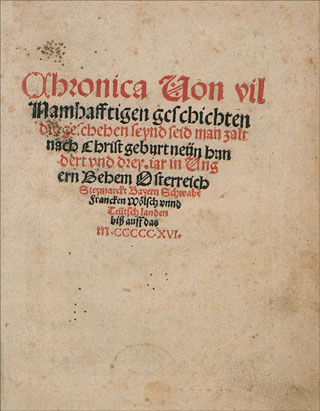 Chronica Von vil
Namhafftigen geschichten
die geschehen seynd seid man zalt
nach Christ geburt neün hun
dert vnd drey. iar in Ung
ern Behem Österreich
Steymarckt Bayern Schwabē
Francken Wölsch vnnd
Teütsch landen
biß auff das
M.CCCCC.XVI.